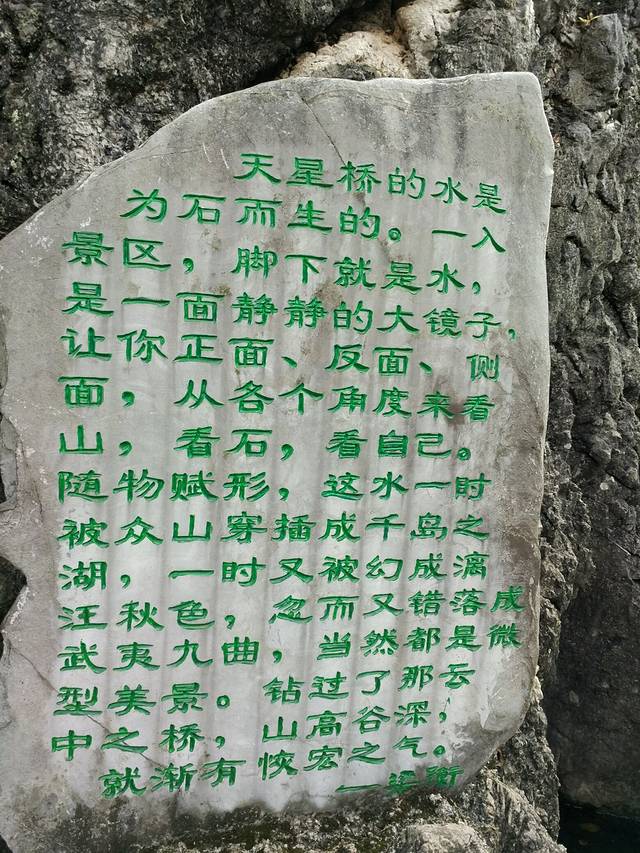 天星桥的水是
为石而生的。一入
景区，脚下就是水，
是一面静静的大镜子，
让你正面、反面、侧
面，从各个角度来看
山，看石，看自己。
随物赋形，这水一时
被众山穿插成千岛之
湖，一时又被幻成漓
江秋色，忽而又错落成
武夷九曲，当然都是微
型美景。钻过了那云
中之桥，山高谷深，
就渐有恢宏之气。
一梁衡